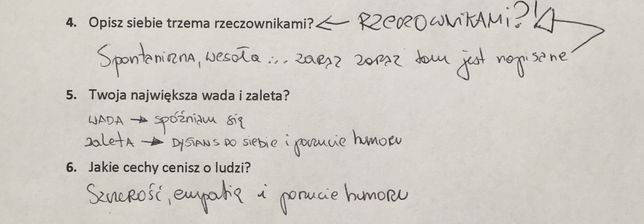 4. Opisz siebie trzema rzeczownikami? ← RZECZOWNIKAMI?!
Spontaniczna, wesoła ... zaraz zaraz tam jest napisane
5. Twoja największa wada i zaleta?
WADA → spóźniam się
zaleta → DYSTANS DO SIEBIE i poczucie humoru
6. Jakie cechy cenisz o ludzi?
Szczerość, empatię i poczucie humoru